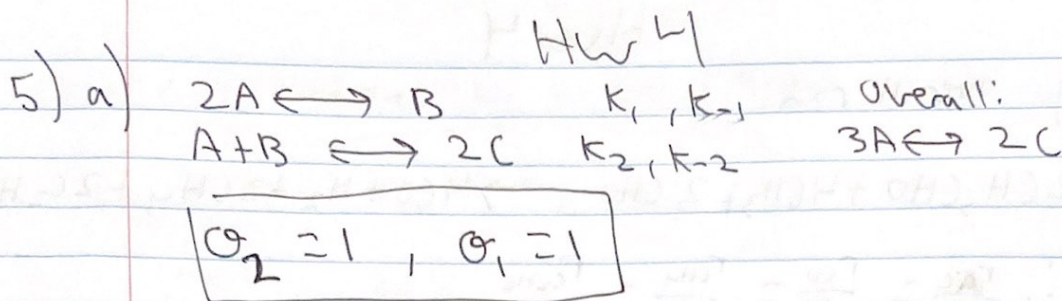 HW 4
5) a) 2A ⟷ B K₁, K₋₁ Overall:
A+B ⟷ 2C K₂, K₋₂ 3A ⟷ 2C
σ₂ = 1, σ₁ = 1